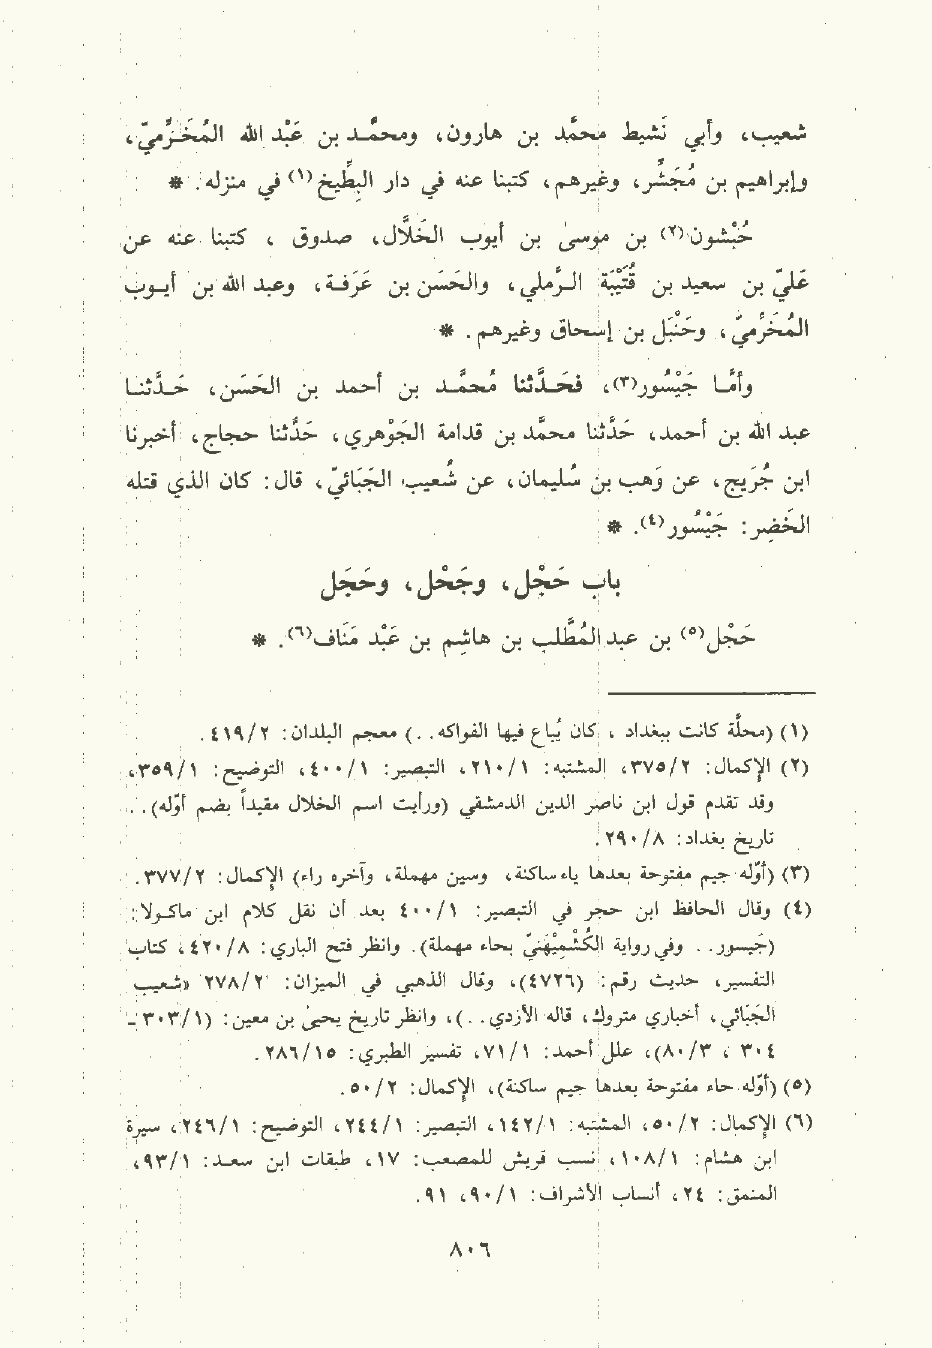 شعيب، وأبي نَشيط محمَّد بن هارون، ومحمَّد بن عَبْد الله المُخَـرِّميّ،
وإبراهيم بن مُجَشِّر، وغيرهم، كتبنا عنه في دار البِطِّيخ(١) في منزله. *
حُبْشون(٢) بن موسىٰ بن أيوب الخَلَّال، صدوق ، كتبنا عنه عن
عَليّ بن سعيد بن قُتَيْبَة الـرَّملي، والحَسَن بن عَرَفـة، وعبد الله بن أيـوب
المُخَرِّميّ، وحَنْبَل بن إسحاق وغيرهم. *
وأمَّـا جَيْسُور(٣)، فحَـدَّثنا مُحمَّـد بن أحمد بن الحَسَن، حَـدَّثنـا
عبد الله بن أحمد، حَدَّثنا محمَّد بن قدامة الجَوْهري، حَدَّثنا حجاج، أخبرنا
ابن جُرَيج، عن وَهب بن سُليمان، عن شُعيب الجَبَائيّ، قال: كان الذي قتله
الخَضِر: جَيْسُور(٤). *
باب حَجْل، وجَحْل، وحَجَل
حَجْل(٥) بن عبد المُطَّلب بن هاشِم بن عَبْد مَنَاف(٦). *
(١) (محلَّة كانت ببغداد ، كان يُباع فيها الفواكه. .) معجم البلدان: ٤١٩/٢.
(٢) الإكمال: ٣٧٥/٢، المشتبه: ٢١٠/١، التبصير: ٤٠٠/١، التوضيح: ٣٥٩/١،
وقد تقدم قول ابن ناصر الدين الدمشقي (ورأيت اسم الخلال مقيداً بضم أوّله). .
تاريخ بغداد: ٢٩٠/٨.
(٣) (أوّله جيم مفتوحة بعدها ياء ساكنة، وسين مهملة، وآخره راء) الإكمال: ٣٧٧/٢.
(٤) وقال الحافظ ابن حجر في التبصير: ٤٠٠/١ بعد أن نقل كلام ابن ماكـولا:
(جَيسور. . وفي رواية الكُشْمِيْهَنيّ بحاء مهملة). وانظر فتح الباري: ٤٢٠/٨، كتاب
التفسير، حديث رقم: (٤٧٢٦)، وقال الذهبي في الميزان: ٢٧٨/٢ «شعيب
الجَبَائي، أخباري متروك، قاله الأزدي. .)، وانظر تاريخ يحيىٰ بن معين: (٣٠٣/١ -
٣٠٤ ، ٨٠/٣)، علل أحمد: ٧١/١، تفسير الطبري: ٢٨٦/١٥.
(٥) (أوّله حاء مفتوحة بعدها جيم ساكنة)، الإكمال: ٥٠/٢.
(٦) الإكمال: ٥٠/٢، المشتبه: ١٤٢/١، التبصير: ٢٤٤/١، التوضيح: ٢٤٦/١، سيرة
ابن هشام: ١٠٨/١، نسب قريش للمصعب: ١٧، طبقات ابن سعد: ٩٣/١،
المنمق: ٢٤، أنساب الأشراف: ٩٠/١، ٩١.
٨٠٦